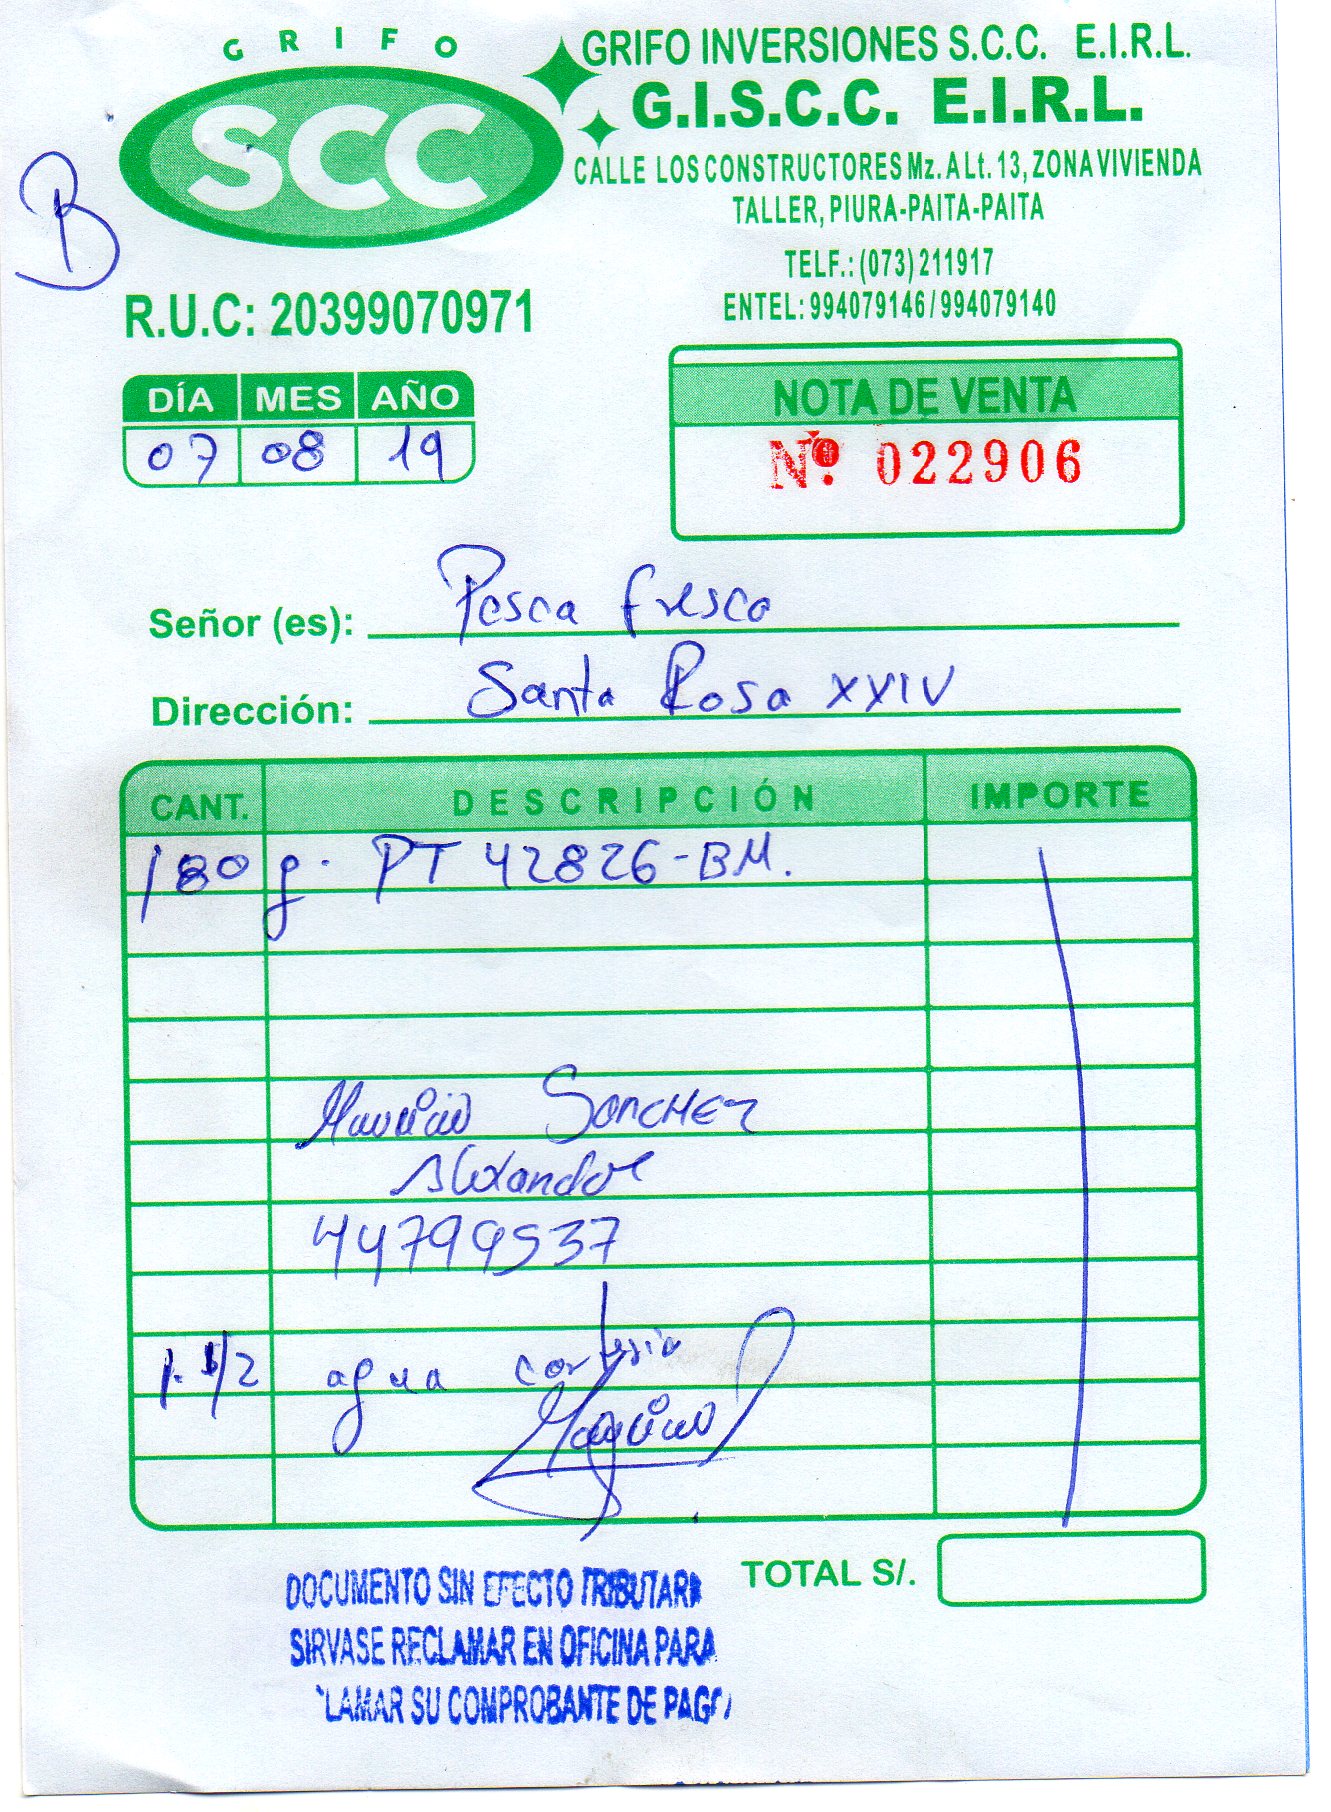 GRIFO
SCC
GRIFO INVERSIONES S.C.C. E.I.R.L.
G.I.S.C.C. E.I.R.L.
CALLE LOS CONSTRUCTORES Mz. A Lt. 13, ZONA VIVIENDA
TALLER, PIURA-PAITA-PAITA
TELF.: (073) 211917
ENTEL: 994079146 / 994079140
B
R.U.C: 20399070971
DÍA MES AÑO
07 08 19
NOTA DE VENTA
Nº. 022906
Señor (es): Pesca fresca
Dirección: Santa Rosa XXIV
CANT. DESCRIPCIÓN IMPORTE
180 g. PT 42826-BM.
Mauricio SANCHEZ
Alexander
44799537
1. 1/2 agua cortesia
Mauricio
TOTAL S/.
DOCUMENTO SIN EFECTO TRIBUTARI
SIRVASE RECLAMAR EN OFICINA PARA
LAMAR SU COMPROBANTE DE PAGO